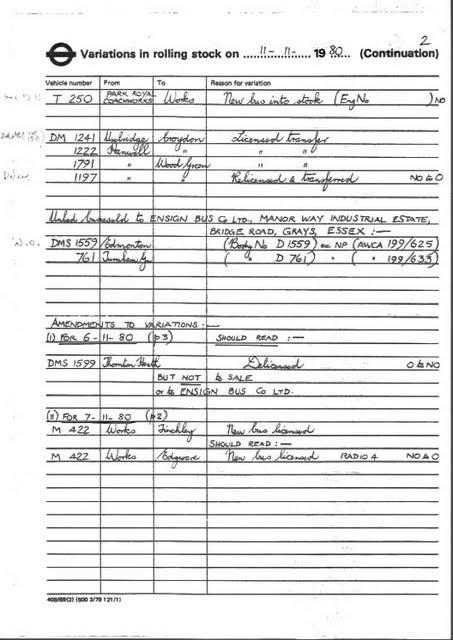 2
Variations in rolling stock on 11-11- 19 80 (Continuation)
Vehicle number From To Reason for variation
T 250 PARK ROYAL COACHWORKS Works New bus into stock (Eng No ) NO
DM 1241 Uxbridge Croydon Licensed transfer
1222 Hanwell " " "
1791 " Wood Green " "
1197 " " Relicensed & transferred NO to O
sold to ENSIGN BUS Co LTD., MANOR WAY INDUSTRIAL ESTATE,
BRIDGE ROAD, GRAYS, ESSEX :—
W.O.
DMS 1559 Edmonton (Body No D 1559) ex NP (AWCA 199/625)
761 Turnham Gn ( " D 761) " ( " 199/633)
AMENDMENTS TO VARIATIONS :—
(i) FOR 6-11-80 (p3) SHOULD READ :—
DMS 1599 Thornton Heath Delicensed O to NO
BUT NOT to SALE
or to ENSIGN BUS Co LTD.
(ii) FOR 7-11-80 (p2)
M 422 Works Finchley New bus licensed
SHOULD READ :—
M 422 Works Edgware New bus licensed RADIO 4 NO to O
408/69(2) (500 3/79 121/1)